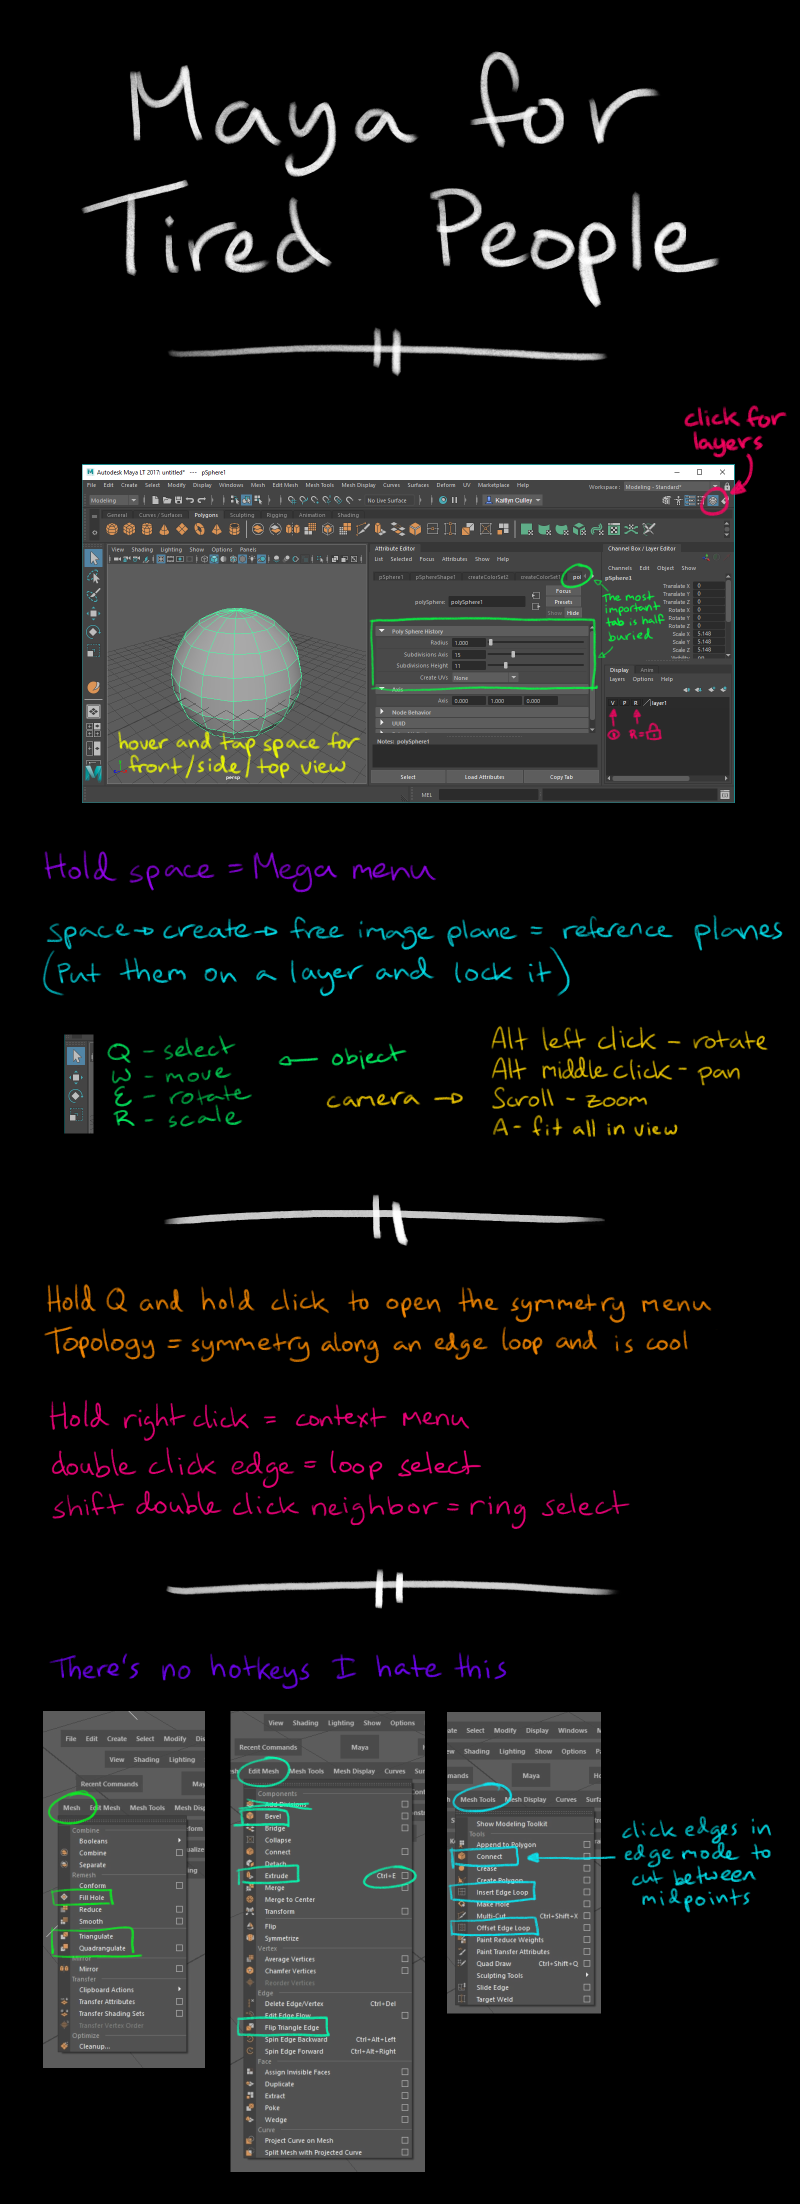 Maya for
Tired People
click for
layers
Autodesk Maya LT 2017: untitled* --- pSphere1
File Edit Create Select Modify Display Windows Mesh Edit Mesh Mesh Tools Mesh Display Curves Surfaces Deform UV Marketplace Help
Workspace: Modeling - Standard*
Modeling
No Live Surface
Kaitlyn Culley
General Curves / Surfaces Polygons Sculpting Rigging Animation Shading
View Shading Lighting Show Options Panels
Attribute Editor
List Selected Focus Attributes Show Help
pSphere1 pSphereShape1 createColorSet2 createColorSet1 pol
polySphere: polySphere1
Focus
Presets
Show Hide
Poly Sphere History
Radius 1.000
Subdivisions Axis 15
Subdivisions Height 11
Create UVs None
Axis
Axis 0.000 1.000 0.000
Node Behavior
UUID
Notes: polySphere1
Select Load Attributes Copy Tab
The most
important
tab is half
buried
Channel Box / Layer Editor
Channels Edit Object Show
pSphere1
Translate X 0
Translate Y 0
Translate Z 0
Rotate X 0
Rotate Y 0
Rotate Z 0
Scale X 5.148
Scale Y 5.148
Scale Z 5.148
Visibility on
Display Anim
Layers Options Help
V P R layer1
R=
hover and tap space for
front/side/top view
persp
MEL
Hold space = Mega menu
space→create→free image plane = reference planes
(Put them on a layer and lock it)
Q - select
W - move
E - rotate
R - scale
← object
camera →
Alt left click - rotate
Alt middle click - pan
Scroll - zoom
A - fit all in view
Hold Q and hold click to open the symmetry menu
Topology = symmetry along an edge loop and is cool
Hold right click = context menu
double click edge = loop select
shift double click neighbor = ring select
There's no hotkeys I hate this
File Edit Create Select Modify Dis
View Shading Lighting
Recent Commands Ma
Mesh Edit Mesh Mesh Tools Mesh Disp
Combine
Booleans
Combine
Separate
Remesh
Conform
Fill Hole
Reduce
Smooth
Triangulate
Quadrangulate
Mirror
Mirror
Transfer
Clipboard Actions
Transfer Attributes
Transfer Shading Sets
Transfer Vertex Order
Optimize
Cleanup...
View Shading Lighting Show Options
Recent Commands Maya
Edit Mesh Mesh Tools Mesh Display Curves Sur
Components
Add Divisions
Bevel
Bridge
Collapse
Connect
Detach
Extrude Ctrl+E
Merge
Merge to Center
Transform
Flip
Symmetrize
Vertex
Average Vertices
Chamfer Vertices
Reorder Vertices
Edge
Delete Edge/Vertex Ctrl+Del
Edit Edge Flow
Flip Triangle Edge
Spin Edge Backward Ctrl+Alt+Left
Spin Edge Forward Ctrl+Alt+Right
Face
Assign Invisible Faces
Duplicate
Extract
Poke
Wedge
Curve
Project Curve on Mesh
Split Mesh with Projected Curve
ate Select Modify Display Windows M
ew Shading Lighting Show Options Pa
mands Maya Ho
Mesh Tools Mesh Display Curves Surfac
Show Modeling Toolkit
Tools
Append to Polygon
Connect
Crease
Create Polygon
Insert Edge Loop
Make Hole
Multi-Cut Ctrl+Shift+X
Offset Edge Loop
Paint Reduce Weights
Paint Transfer Attributes
Quad Draw Ctrl+Shift+Q
Sculpting Tools
Slide Edge
Target Weld
click edges in
edge mode to
cut between
midpoints